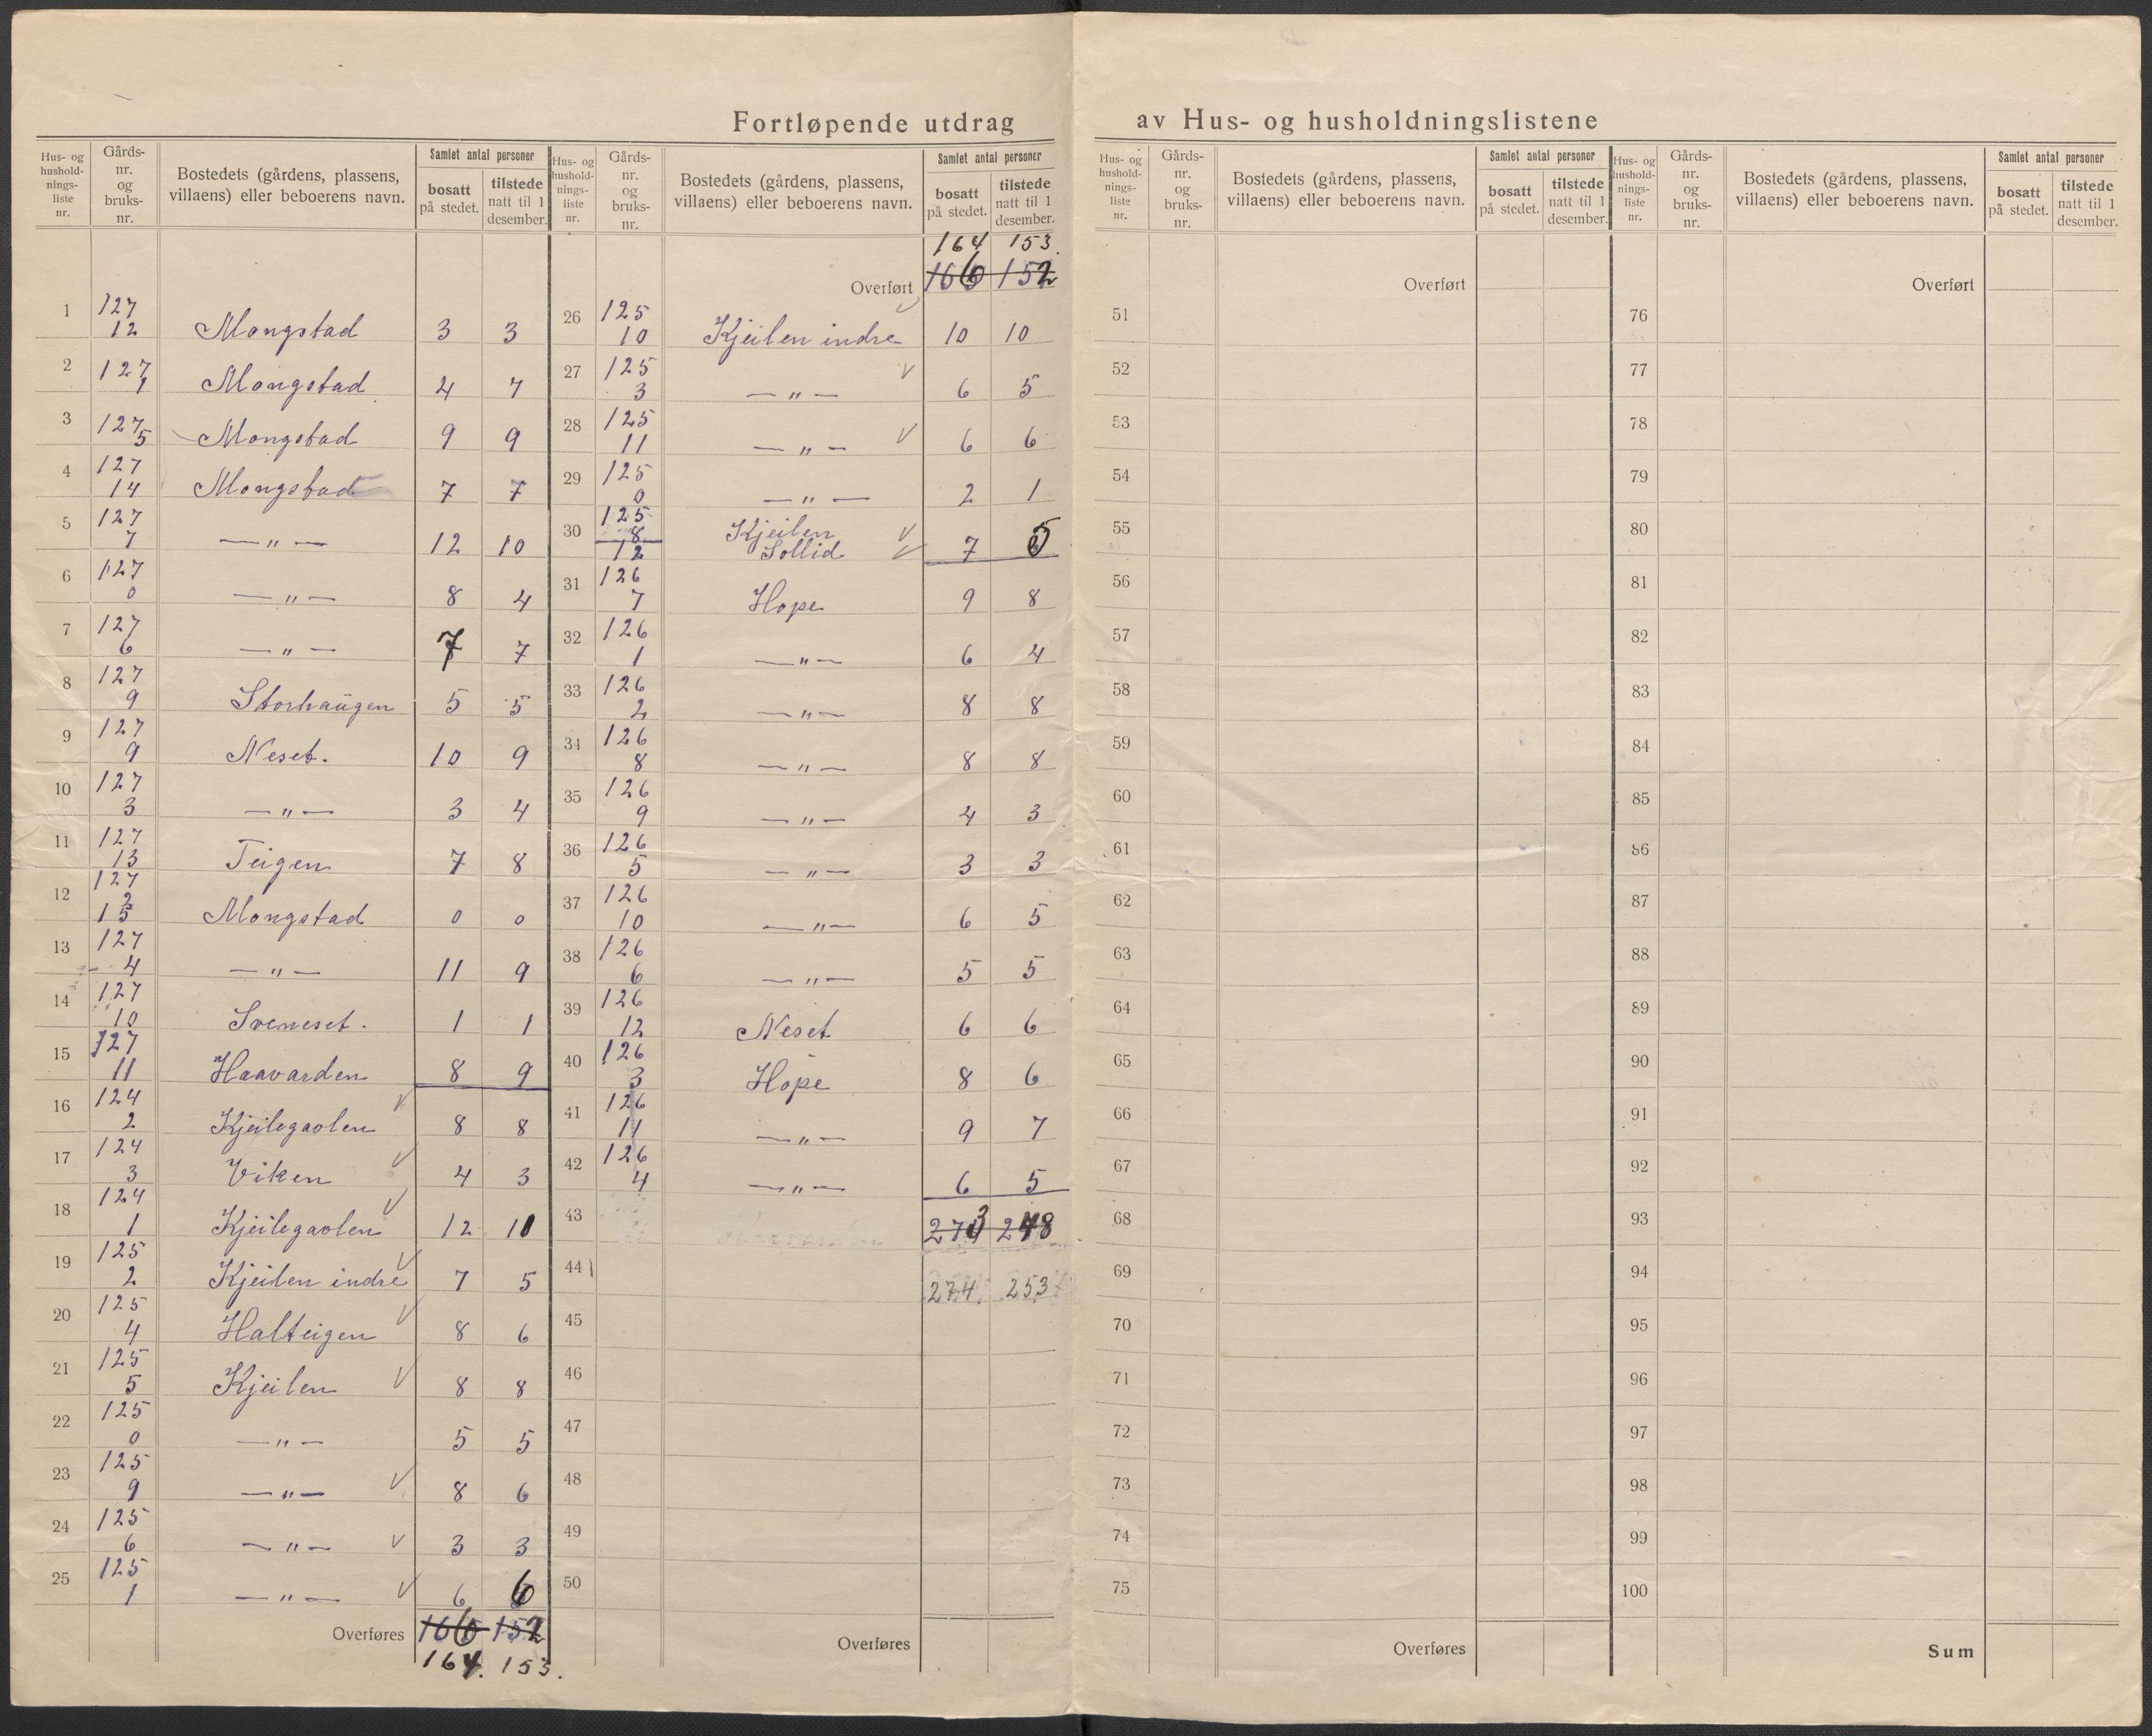 Fortløpende utdrag av Hus- og husholdningslistene
Hus- og hushold-nings-liste nr. Gårds-nr. og bruks-nr. Bostedets (gårdens, plassens, villaens) eller beboerens navn. Samlet antal personer bosatt på stedet. tilstede natt til 1 desember.
1 127 12 Mongstad 3 3
2 127 1 Mongstad 4 7
3 127 5 Mongstad 9 9
4 127 14 Mongstad 7 7
5 127 7 — " — 12 10
6 127 0 — " — 8 4
7 127 6 — " — 7 7
8 127 9 Storhaugen 5 5
9 127 9 Neset. 10 9
10 127 3 — " — 3 4
11 127 13 Teigen 7 8
12 127 2 15 Mongstad 0 0
13 127 4 — " — 11 9
14 127 10 Sveneset. 1 1
15 127 11 Haavarden 8 9
16 124 2 Kjeilegavlen 8 8
17 124 3 Viken 4 3
18 124 1 Kjeilegavlen 12 10
19 125 2 Kjeilen indre 7 5
20 125 4 Halteigen 8 6
21 125 5 Kjeilen 8 8
22 125 0 — " — 5 5
23 125 9 — " — 8 6
24 125 6 — " — 3 3
25 125 1 — " — 6 6
Overføres 166 152
164. 153.
Hus- og hushold-nings-liste nr. Gårds-nr. og bruks-nr. Bostedets (gårdens, plassens, villaens) eller beboerens navn. Samlet antal personer bosatt på stedet. tilstede natt til 1 desember.
164 153.
Overført 166 152
26 125 10 Kjeilen indre 10 10
27 125 3 — " — 6 5
28 125 11 — " — 6 6
29 125 0 — " — 2 1
30 125 8 12 Kjeilen Sollid 7 5
31 126 7 Hope 9 8
32 126 1 — " — 6 4
33 126 2 — " — 8 8
34 126 8 — " — 8 8
35 126 9 — " — 4 3
36 126 5 — " — 3 3
37 126 10 — " — 6 5
38 126 6 — " — 5 5
39 126 12 Neset 6 6
40 126 3 Hope 8 6
41 126 11 — " — 9 7
42 126 4 — " — 6 5
43 273 248
44 274. 253
45
46
47
48
49
50
Overføres
Hus- og hushold-nings-liste nr. Gårds-nr. og bruks-nr. Bostedets (gårdens, plassens, villaens) eller beboerens navn. Samlet antal personer bosatt på stedet. tilstede natt til 1 desember.
Overført
51
52
53
54
55
56
57
58
59
60
61
62
63
64
65
66
67
68
69
70
71
72
73
74
75
Overføres
Hus- og hushold-nings-liste nr. Gårds-nr. og bruks-nr. Bostedets (gårdens, plassens, villaens) eller beboerens navn. Samlet antal personer bosatt på stedet. tilstede natt til 1 desember.
Overført
76
77
78
79
80
81
82
83
84
85
86
87
88
89
90
91
92
93
94
95
96
97
98
99
100
Sum